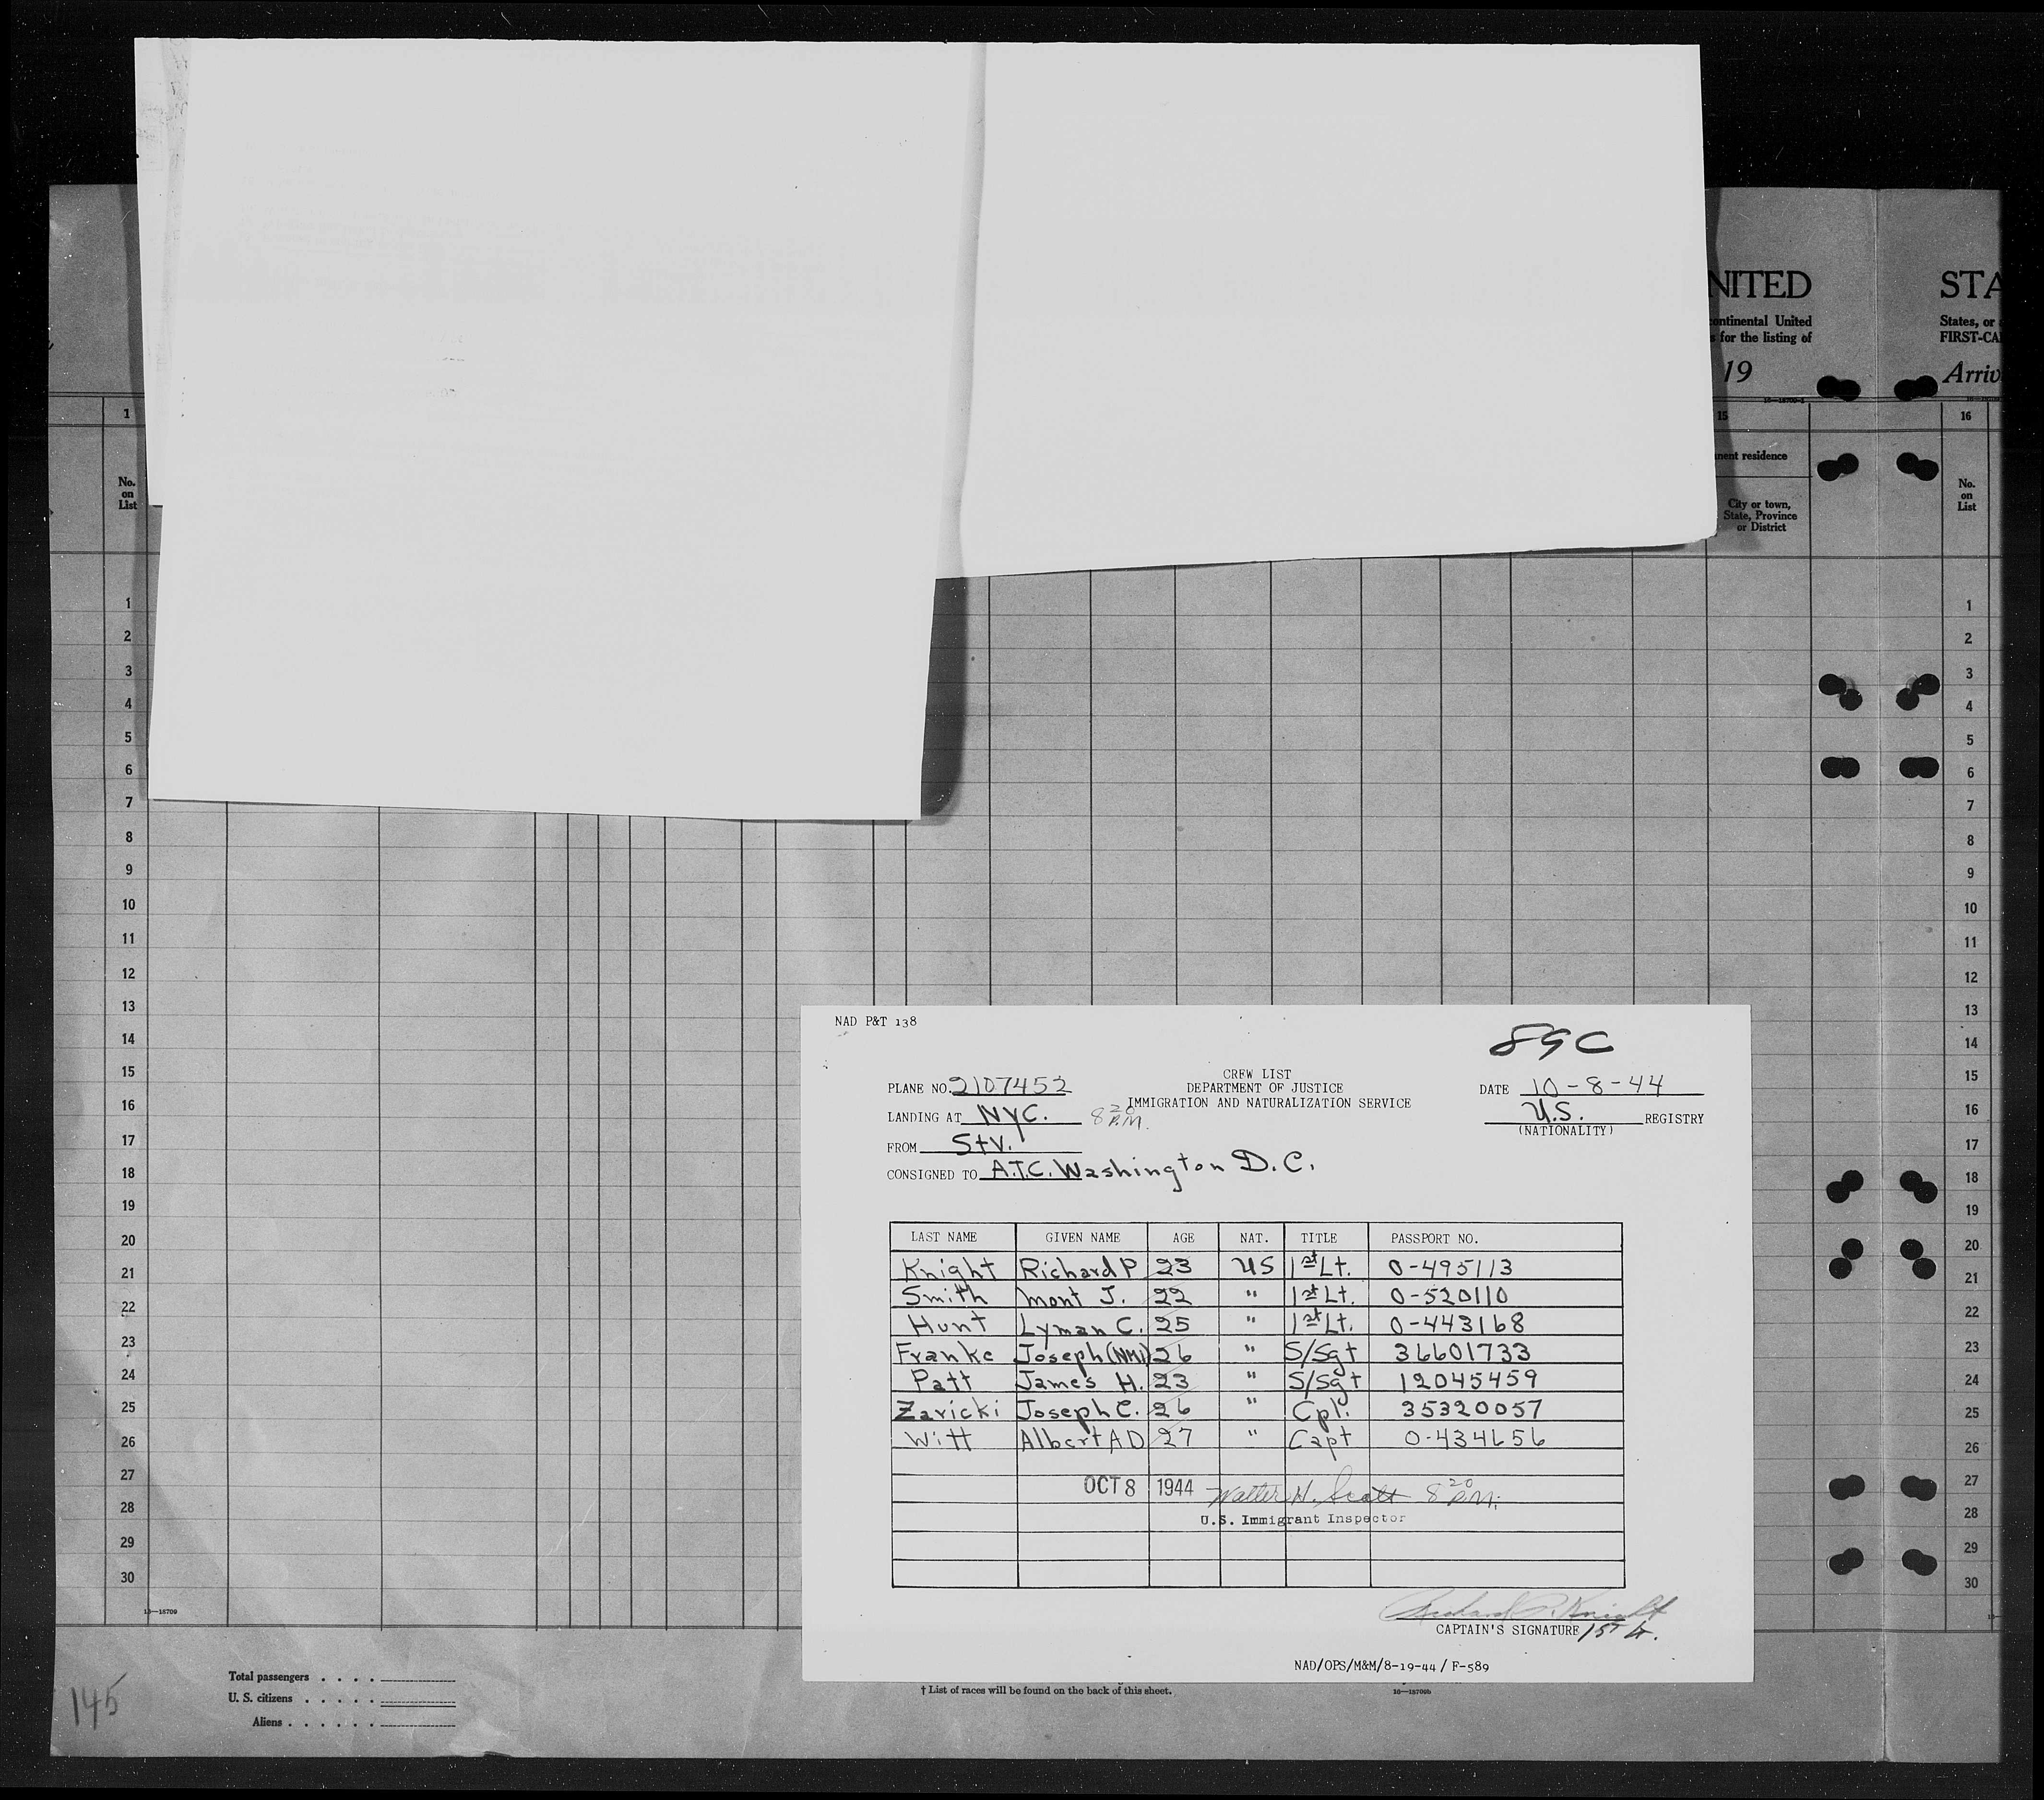 NITED
STA
ontinental United
for the listing of
States, or
FIRST-CA
19
Arriv
1
15
16
nent residence
No.
on
List
City or town,
State, Province
or District
No.
on
List
1 1
2 2
3 3
4 4
5 5
6 6
7 7
8 8
9 9
10 10
11 11
12 12
13 13
14 14
15 15
16 16
17 17
18 18
19 19
20 20
21 21
22 22
23 23
24 24
25 25
26 26
27 27
28 28
29 29
30 30
16—18709
NAD P&T 138
CREW LIST
PLANE NO. 2107452 DEPARTMENT OF JUSTICE DATE 10-8-44
IMMIGRATION AND NATURALIZATION SERVICE
LANDING AT NYC. 8 20 P.M. U.S. REGISTRY
(NATIONALITY)
FROM StV.
CONSIGNED TO A.T.C. Washington D.C.
LAST NAME GIVEN NAME AGE NAT. TITLE PASSPORT NO.
Knight Richard P 23 US 1st Lt. 0-495113
Smith Mont J. 22 " 1st Lt. 0-520110
Hunt Lyman C. 25 " 1st Lt. 0-443168
Franke Joseph (NMI) 26 " S/Sgt 36601733
Patt James H. 23 " S/Sgt 12045459
Zavicki Joseph C. 26 " Cpl. 35320057
Witt Albert A D 27 " Capt 0-434656
OCT 8 1944 Walter H. Scott 8 20 P.M.
U.S. Immigrant Inspector
Richard P. Knight
CAPTAIN'S SIGNATURE 1st Lt.
NAD/OPS/M&M/8-19-44 / F-589
145
Total passengers . . . .
U. S. citizens . . . . .
Aliens . . . . . .
† List of races will be found on the back of this sheet.
16—18709b